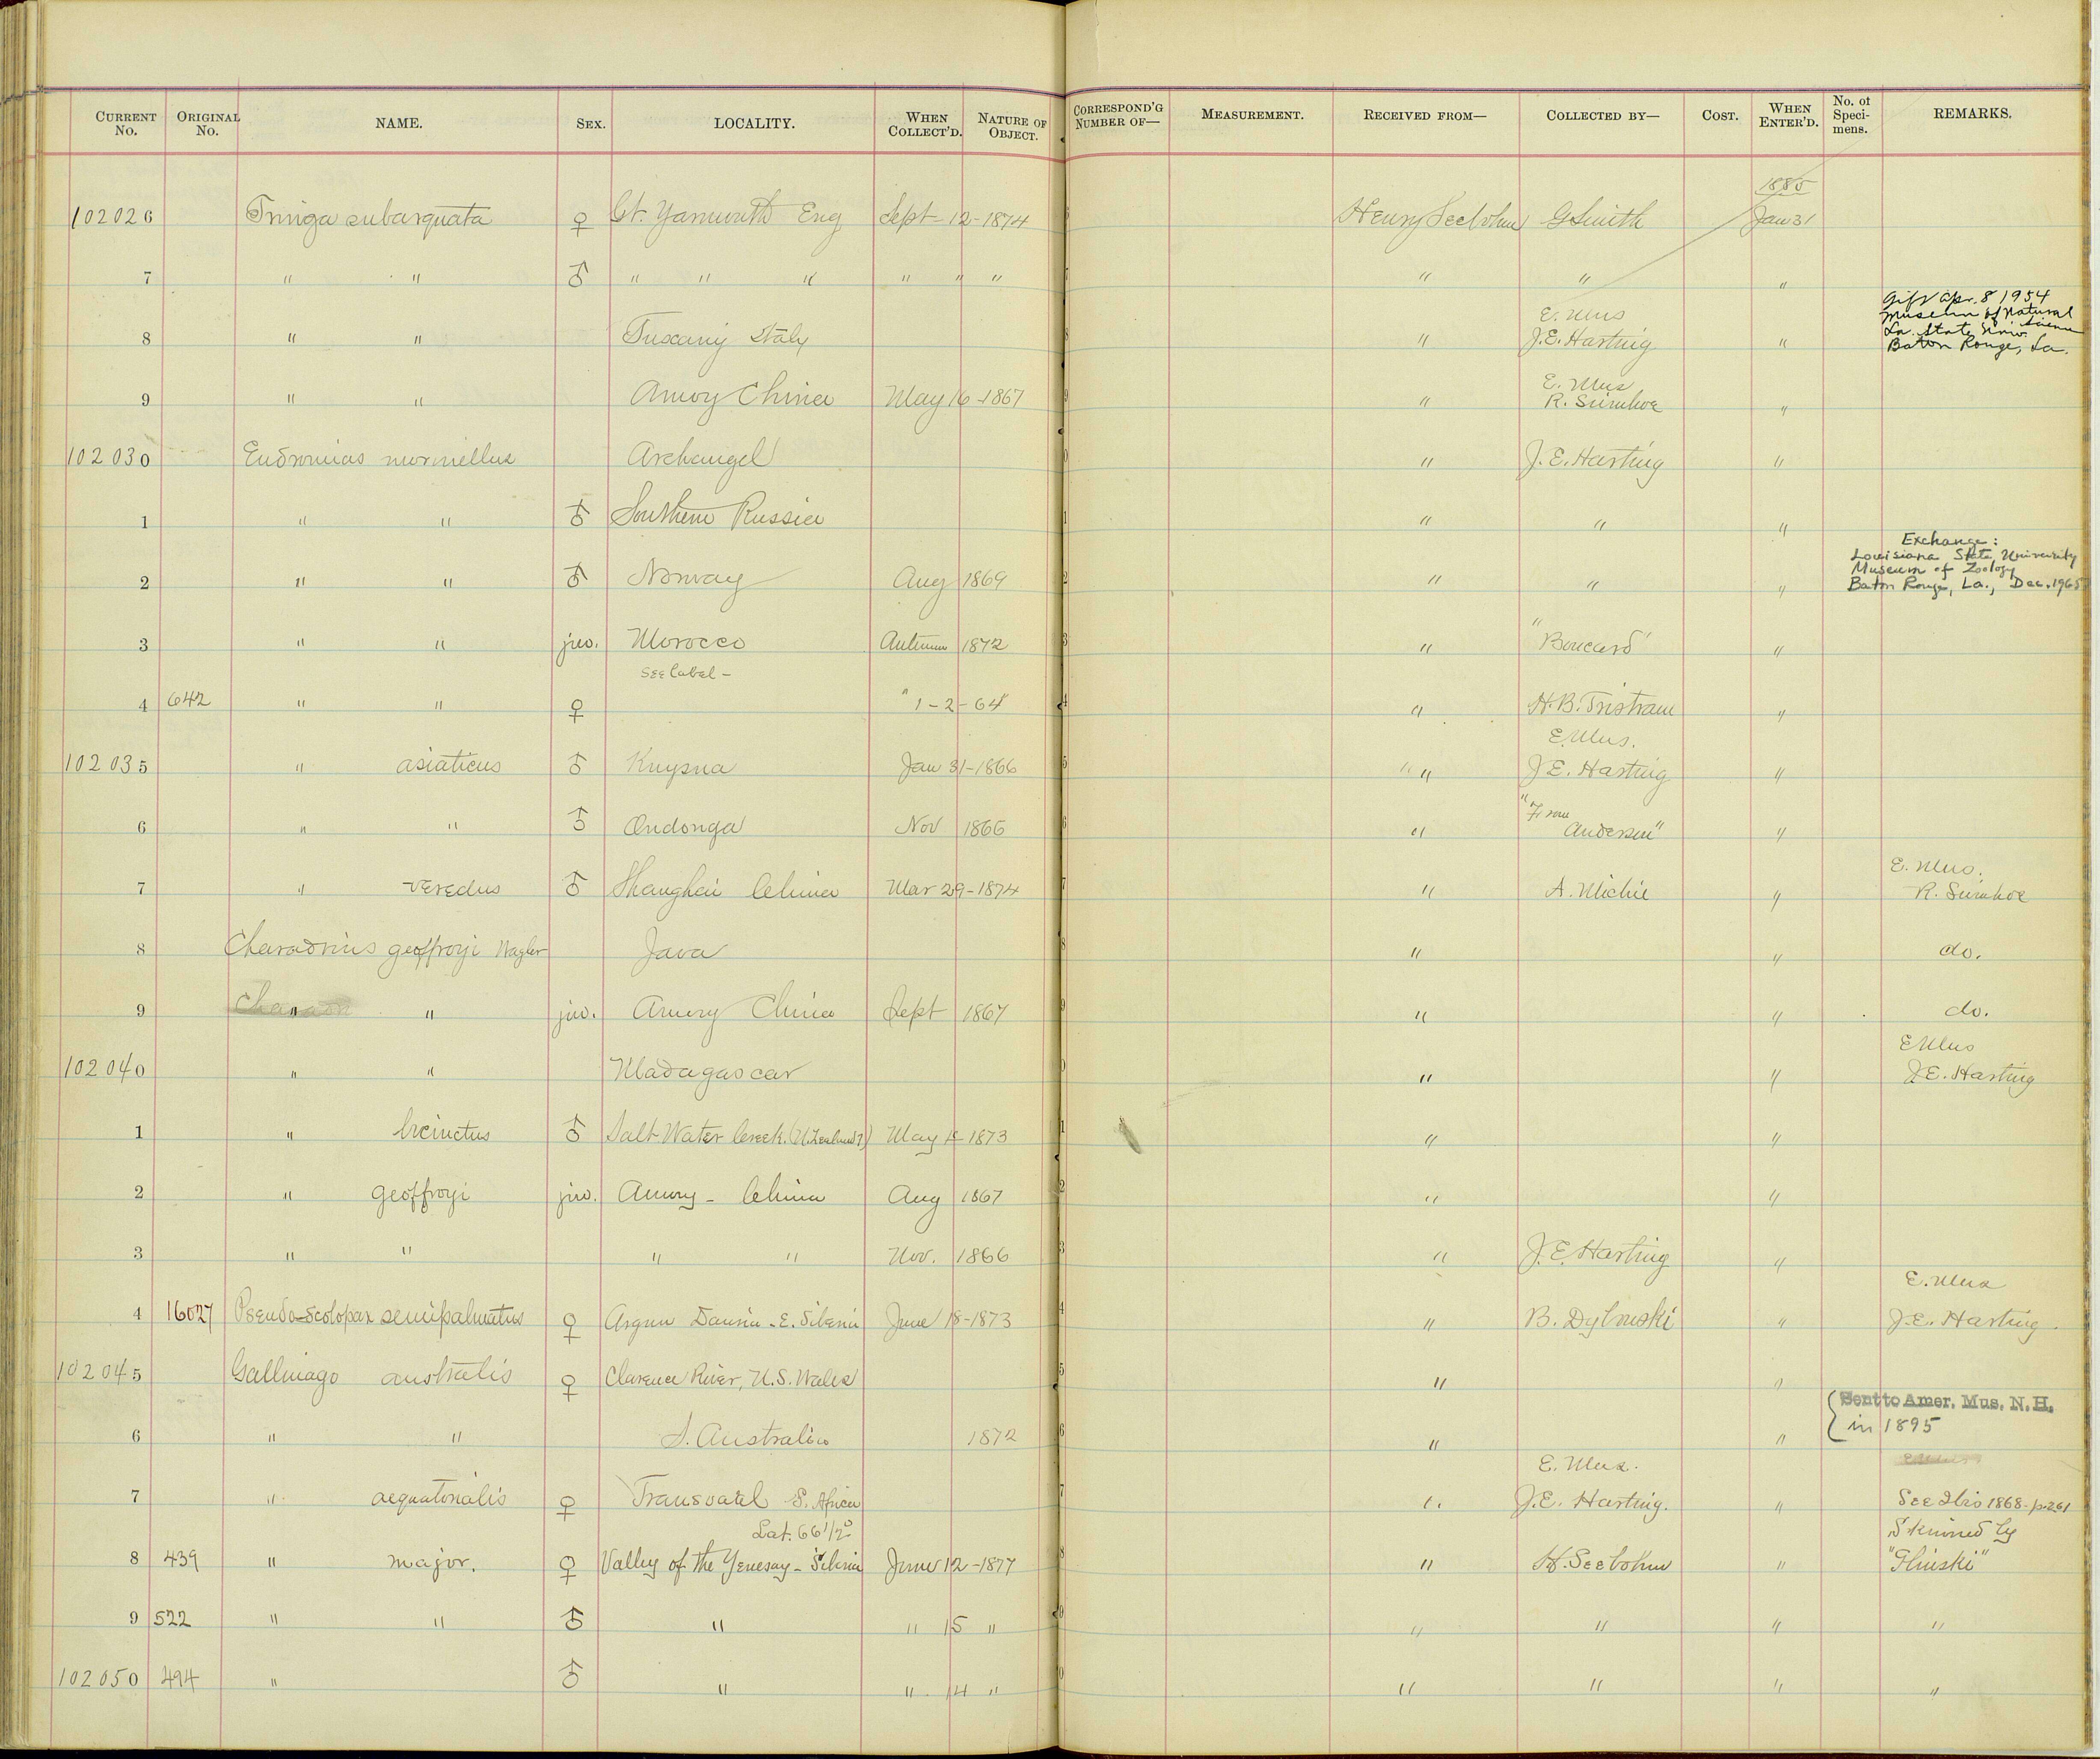 CURRENT No. ORIGINAL No. NAME. SEX. LOCALITY. WHEN COLLECT'D. NATURE OF OBJECT. CORRESPOND'G NUMBER OF— MEASUREMENT. RECEIVED FROM— COLLECTED BY— COST. WHEN ENTER'D. No. of Specimens. REMARKS.
1885
102026 Tringa subarquata ♀ Gt. Yarmouth Eng Sept-12-1874 6 Henry Seebohm G Smith Jan 31
7 " " ♂ " " " " " " 7 " " "
Gift Apr. 8 1954
Museum of Natural
Science
E. Mus
La. State Univ.
8 " " Tuscany Italy 8 " J.E. Harting " Baton Rouge, La.
E. Mus
9 " " Amoy China May 16-1867 9 " R. Swinhoe "
102030 Eudromias morinellus Archangel 0 " J.E. Harting "
1 " " ♂ Southern Russia 1 " " "
Exchange:
Louisiana State University
Museum of Zoology
2 " " ♂ Norway Aug 1869 2 " " " Baton Rouge, La., Dec. 1965
3 " " juv. Morocco Autumn 1872 3 " "Boucard" "
See label -
4 642 " " ♀ "1-2-64" 4 " H.B. Tristram "
E Mus.
102035 " asiaticus ♂ Knysna Jan 31-1866 5 " " J E. Harting "
"From
6 " " ♂ Ondonga Nov 1866 6 " Anderson" "
E. Mus.
7 " veredus ♂ Shanghai China Mar 29-1874 7 " A. Michie " R. Swinhoe
8 Charadrius geoffroyi Wagler Java 8 " " do.
9 " " juv. Amoy China Sept 1867 9 " " do.
E Mus
102040 " " Madagascar 0 " " J.E. Harting
1 " bicinctus ♂ Salt Water Creek. (N. Zealand?) May 1873 1 " "
2 " geoffroyi juv. Amoy - China Aug 1867 2 " "
3 " " " " Nov. 1866 3 " J.E. Harting "
E. Mus
4 16027 Pseudo-scolopax semipalmatus ♀ Argun Dauria - E. Siberia June 18-1873 4 " B. Dybowski " J.E. Harting.
102045 Gallinago australis ♀ Clarence River, N.S. Wales 5 " "
Sent to Amer. Mus. N. H.
6 " " S. Australia 1872 6 " " in 1895
E. Mus.
7 " aequatorialis ♀ Transvaal S. Africa 7 " J.E. Harting. " See Ibis 1868-p.261
Lat. 66 1/2° Skinned by
8 439 " major. ♀ Valley of the Yenesay - Siberia June 12-1877 8 " H. Seebohm " "Glinski"
9 522 " " ♂ " " 15 " 9 " " " "
102050 494 " ♂ " " 14 " 0 " " " "